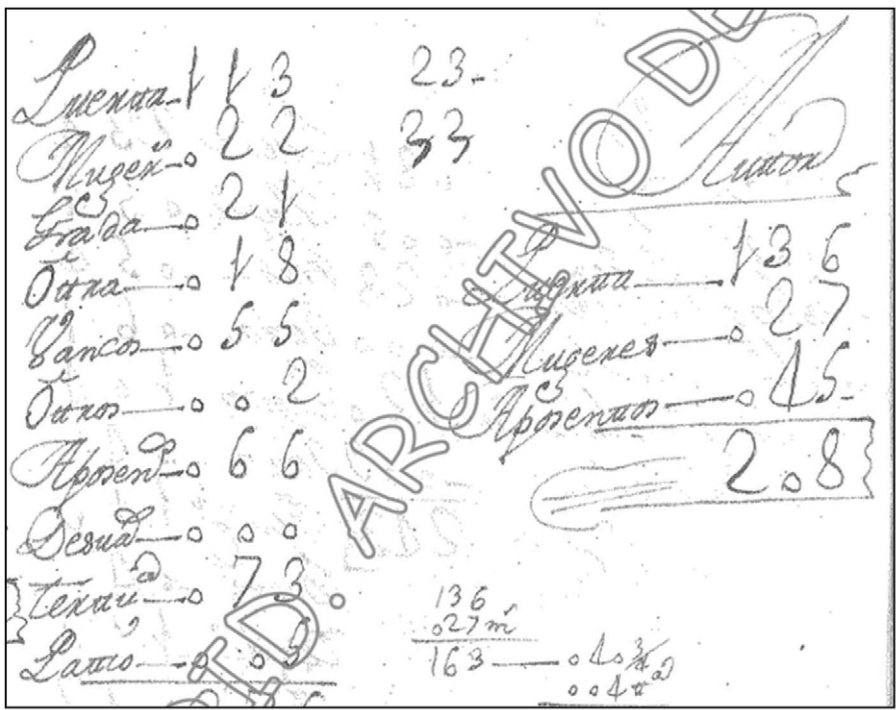 Puertta 113 23-
Mugers. 022 33
Grada 021
Ottra 018
Vancos 055
Ottros 002
Aposendos 066
Desuan 000
Terttuª 073
Pattio 003
Auttor
Puertta 136
Mugeres 027
Aposenttos 045-
208
136
027 m
163 — 040 ¾
004
ARCHIVO DE